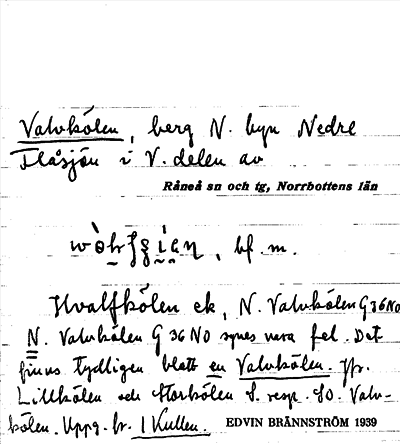 Valvkölen, berg N. byn Nedre
Flåsjön i V. delen av
Råneå sn och tg, Norrbottens län
bf. m.
Hvalfkölen ek, N. Valvkölen G 36 NO
N. Valvkölen G 36 NO synes vara fel. Det
finns tydligen blott en Valvkölen. Jfr.
Lillkölen och Storkölen S. resp. SO. Valv-
kölen. Uppg. fr. I Kullen. EDVIN BRÄNNSTRÖM 1939